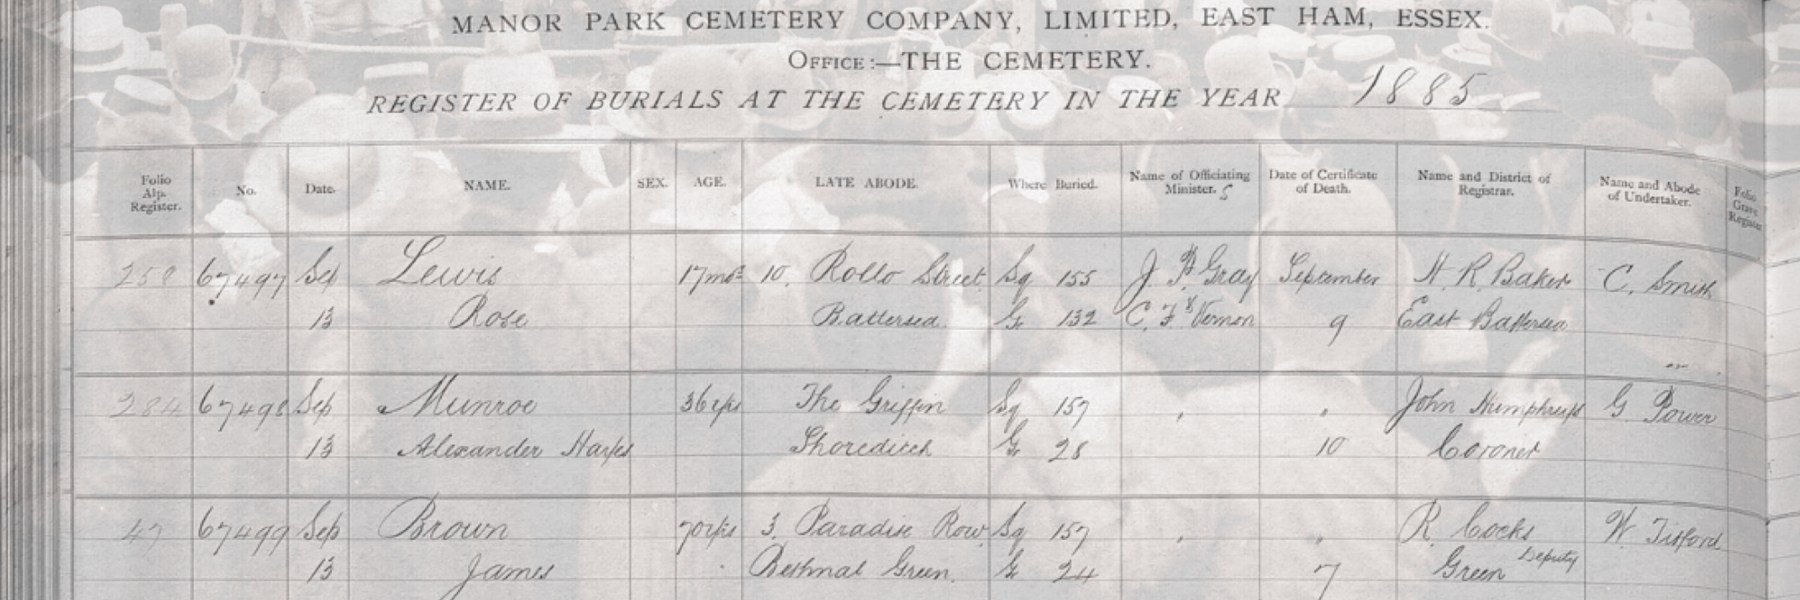 MANOR PARK CEMETERY COMPANY, LIMITED, EAST HAM, ESSEX.
OFFICE:—THE CEMETERY.
REGISTER OF BURIALS AT THE CEMETERY IN THE YEAR 1885
Folio Alp. Register. No. Date. NAME. SEX. AGE. LATE ABODE. Where Buried. Name of Officiating Minister. S Date of Certificate of Death. Name and District of Registrar. Name and Abode of Undertaker. Folio Grave Register
258 67497 Sep Lewis 17mos 10. Rollo Street Sq 155 J. Gray September H. R. Baker C. Smith
13 Rose Battersea Gr 132 C. F. Vernon 9 East Battersea
284 67498 Sep Munroe 36yrs The Griffin Sq 157 " " John Humphreys G Power
13 Alexander Shoreditch Gr 28 10 Coroner
47 67499 Sep Brown 70yrs 3. Paradise Row Sq 157 " " R. Cocks W Titford
13 James Bethnal Green. Gr 24 7 Green Deputy